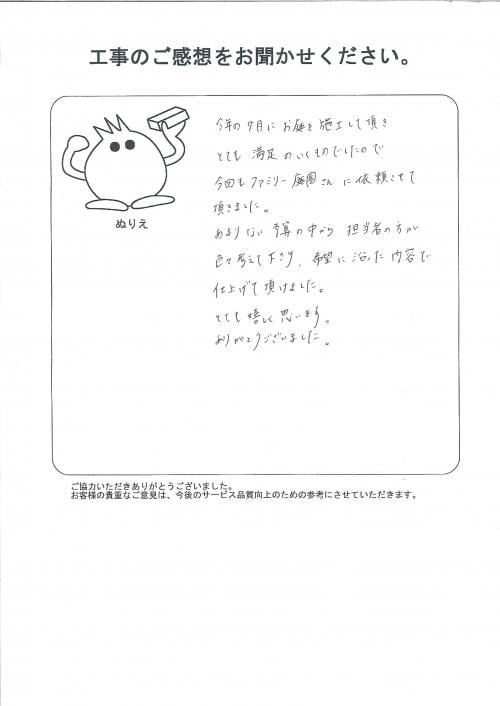 工事のご感想をお聞かせください。
ぬりえ
今年の7月にお庭を施工して頂き
とても満足のいくものでしたので
今回もファミリー庭園さんに依頼させて
頂きました。
あまりない予算の中から担当者の方が
色々考えて下さり、希望に沿った内容で
仕上げて頂けました。
とても嬉しく思います。
ありがとうございました。
ご協力いただきありがとうございました。
お客様の貴重なご意見は、今後のサービス品質向上のための参考にさせていただきます。